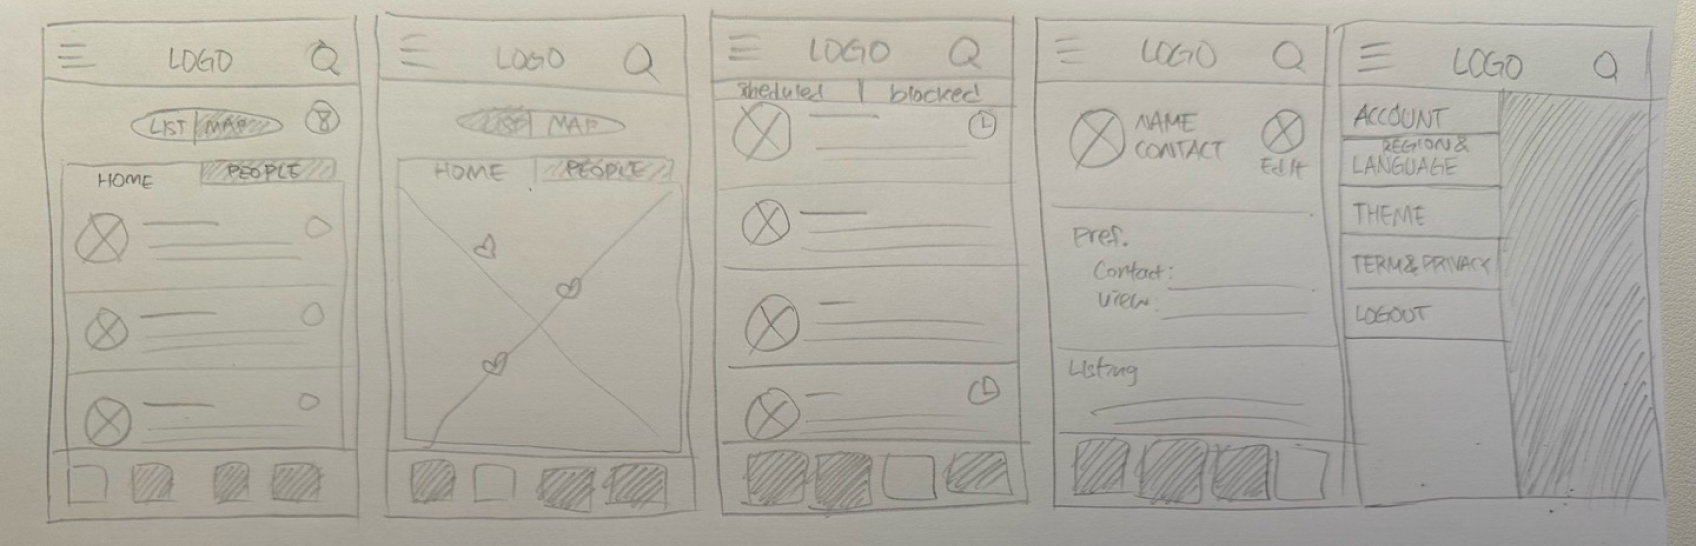 LOGO
LIST MAP
HOME PEOPLE
LOGO
LIST MAP
HOME PEOPLE
LOGO
scheduled blocked
LOGO
NAME
CONTACT
Edit
Pref.
Contact:
View:
Listing
LOGO
ACCOUNT
REGION &
LANGUAGE
THEME
TERM & PRIVACY
LOGOUT